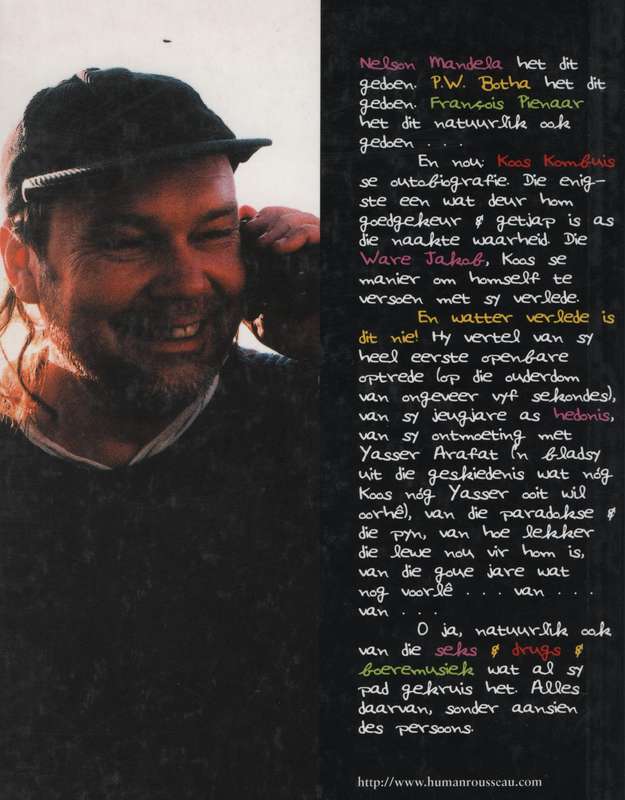 Nelson Mandela het dit
gedoen. P.W. Botha het dit
gedoen. François Pienaar
het dit natuurlik ook
gedoen . . .
En nou: Koos Kombuis
se outobiografie. Die enig-
ste een wat deur hom
goedgekeur & getjap is as
die naakte waarheid. Die
Ware Jakob, Koos se
manier om homself te
versoen met sy verlede.
En watter verlede is
dit nie! Hy vertel van sy
heel eerste openbare
optrede (op die ouderdom
van ongeveer vyf sekondes),
van sy jeugjare as hedonis,
van sy ontmoeting met
Yasser Arafat ('n bladsy
uit die geskiedenis wat nóg
Koos nóg Yasser ooit wil
oorhê), van die paradokse &
die pyn, van hoe lekker
die lewe nou vir hom is,
van die goue jare wat
nog voorlê . . . van . . .
van . . .
O ja, natuurlik ook
van die seks & drugs &
boeremusiek wat al sy
pad gekruis het. Alles
daarvan, sonder aansien
des persoons.
http://www.humanrousseau.com